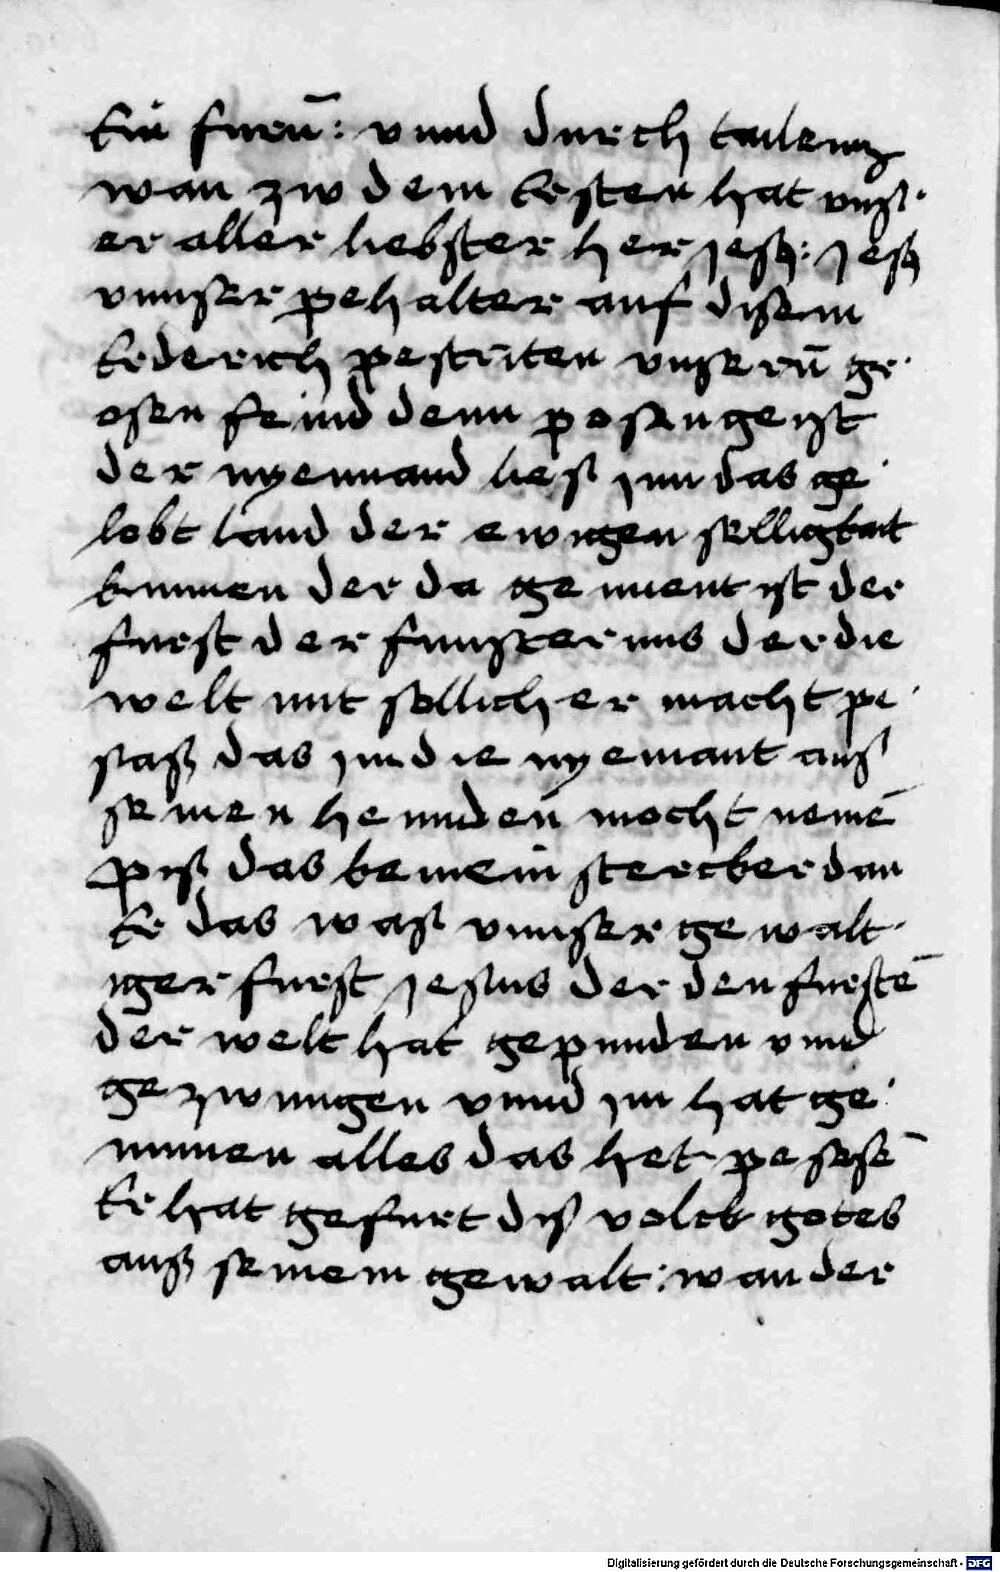 Ein furn̄: vnnd durch tailung
wan zw dem Ersten hat vnß
er aller liebster her jesꝫ: jesꝫ
vnnser pehalter auf disem
Erderich pestriten vnsern̄ gr
osen feind denn posen geist
der nyemand ließ jnn das ge
lobt land der ewigen selligkait
kummen der da genennt ist der
furst der finsternus der die
welt mit sollicher macht pe
saß das jm die nyemant auß
seinen henden mocht nemē
piß das kem ein stercker dan
Er das waß vnnser gewalt
iger furst jesus der den furstē
der welt hat gepunden vnnd
gezwungen vnnd jm hat ge
numen alles das het pesesē
Er hat gefurt diß volck gotes
auß seinem gewalt: wan der
Digitalisierung gefördert durch die Deutsche Forschungsgemeinschaft - DFG